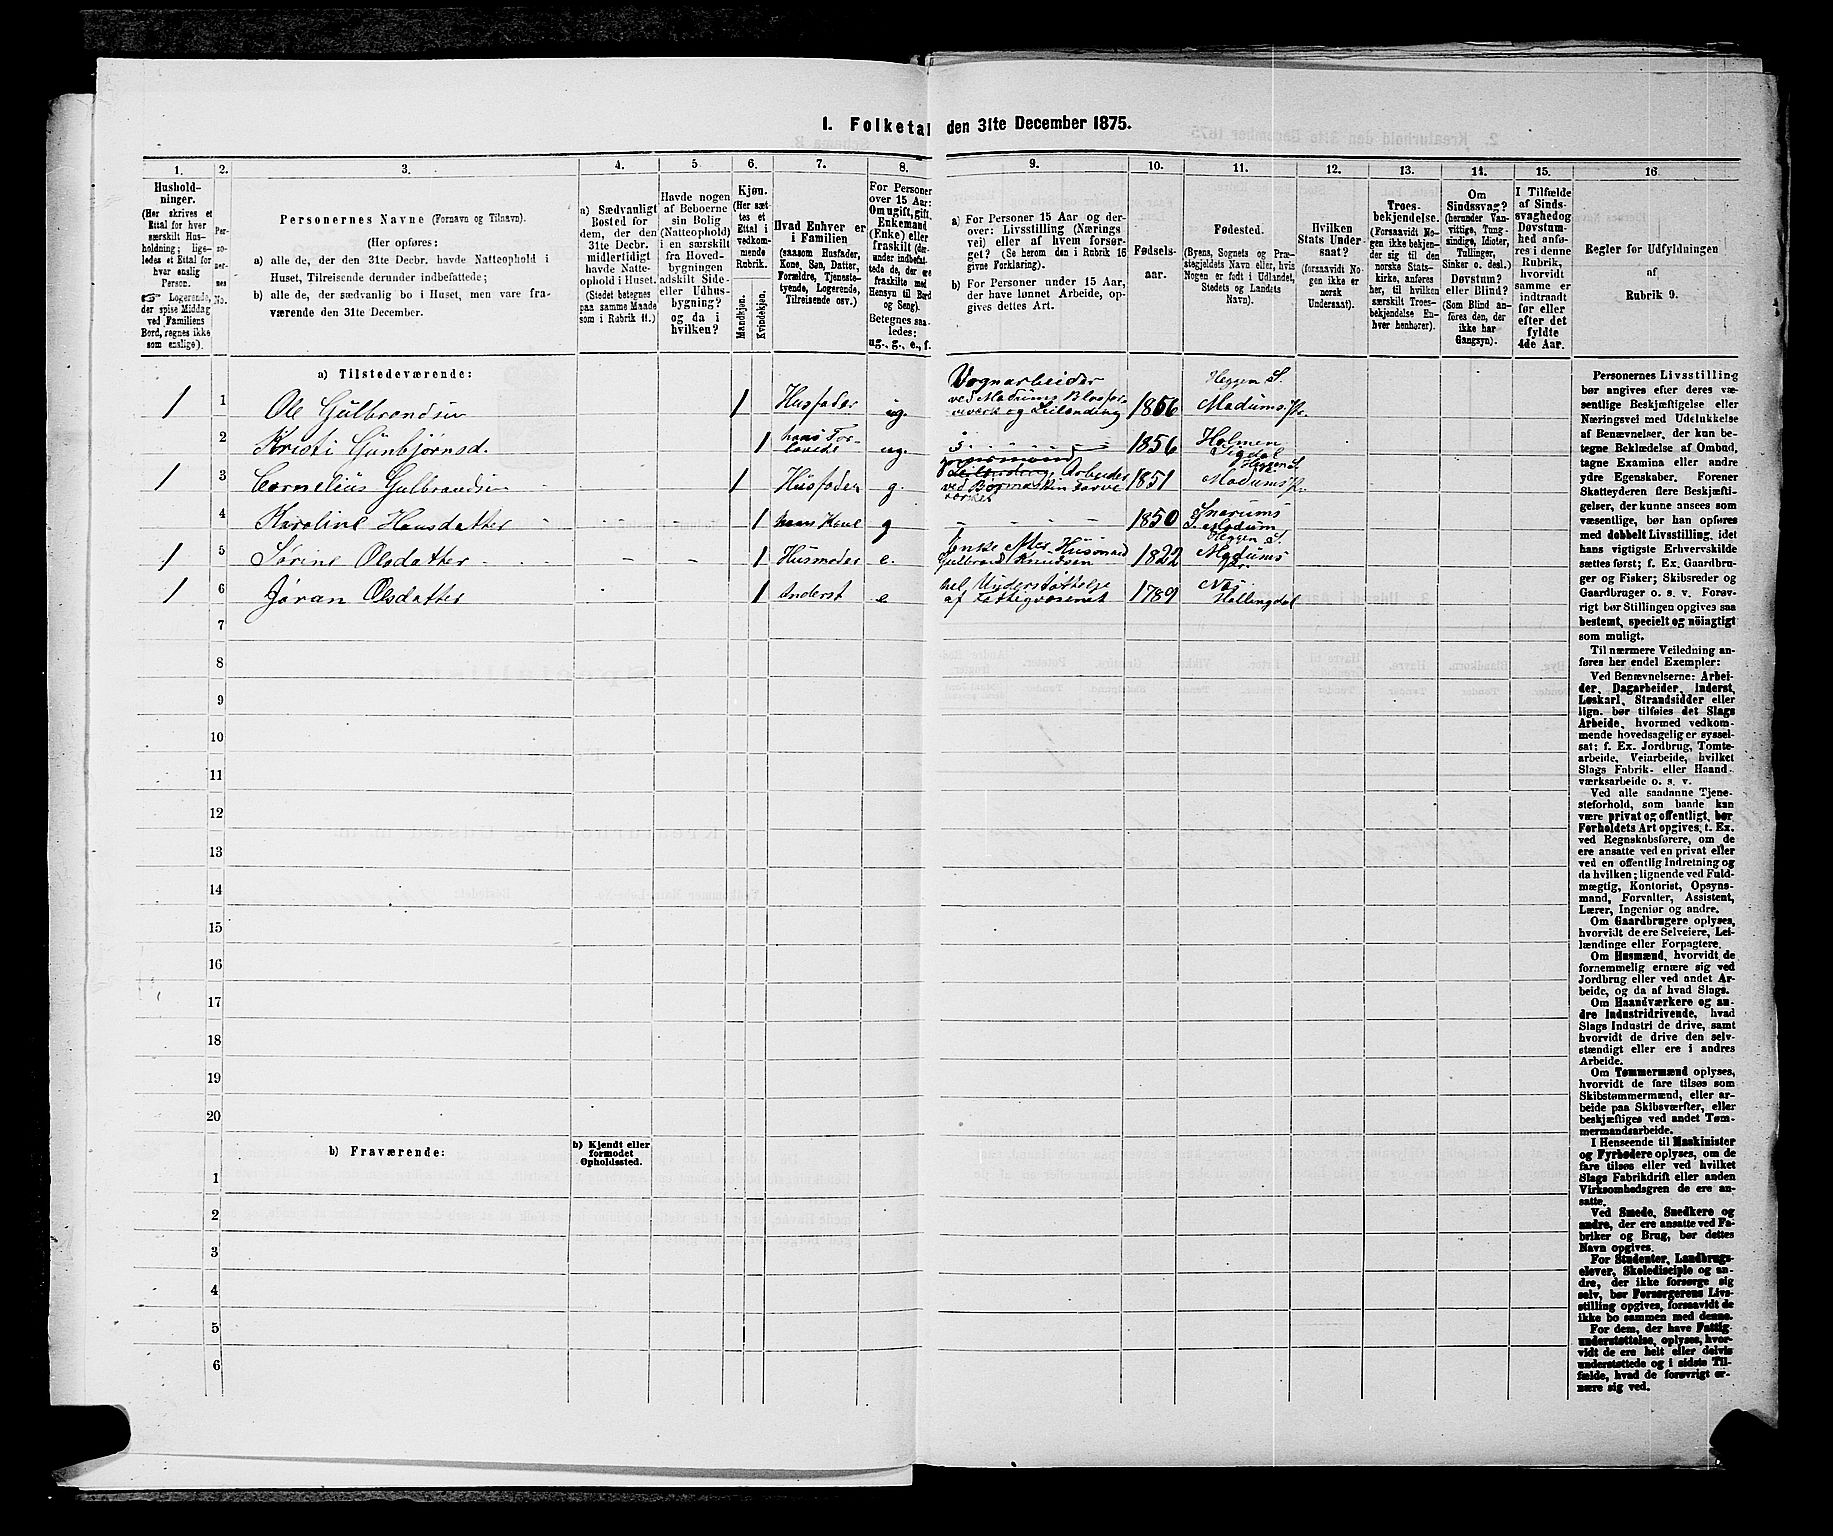 1. Folketal den 31te December 1875.
1. 2. 3. 4. 5. 6. 7. 8. 9. 10. 11. 12. 13. 14. 15. 16.
Hushold-
ninger.
(Her skrives et
Ettal for hver
særskilt Hus-
holdning; lige-
ledes et Ettal for
hver enslig
Person.
☞ Logerende,
der spise Middag
ved Familiens
Bord, regnes ikke
som enslige).
Per-
so-
ner-
nes
No.
Personernes Navne (Fornavn og Tilnavn).
(Her opføres:
a) alle de, der den 31te Decbr. havde Natteophold i
Huset, Tilreisende derunder indbefattede;
b) alle de, der sædvanlig bo i Huset, men vare fra-
værende den 31te December.
a) Sædvanligt
Bosted for
dem, der den
31te Decbr.
midlertidigt
havde Natte-
ophold i Huset.
(Stedet betegnes
paa samme Maade
som i Rubrik 11.)
Havde nogen
af Beboerne
sin Bolig
(Natteophold)
i en særskilt
fra Hoved-
bygningen
adskilt Side-
eller Udhus-
bygning?
og da i
hvilken?
Kjøn.
(Her sæt-
tes et
Ettal i
vedkom-
mende
Rubrik.
Mandkjøn.
Kvindekjøn.
Hvad Enhver er
i Familien
(saasom Husfader,
Kone, Søn, Datter,
Forældre, Tjeneste-
tyende, Logerende,
Tilreisende osv.)
For Personer
over 15 Aar:
Om ugift, gift,
Enkemand
(Enke) eller
fraskilt (der-
under indbefat-
tede de, der ere
fraskilte med
Hensyn til Bord
og Seng).
Betegnes saa-
ledes:
ug., g., e., f.
a) For Personer 15 Aar og der-
over: Livsstilling (Nærings
vei) eller af hvem forsør-
get? (Se herom den i Rubrik 16
givne Forklaring).
b) For Personer under 15 Aar,
der have lønnet Arbeide, op-
gives dettes Art.
Fødsels-
aar.
Fødested.
(Byens, Sognets og Præ-
stegjeldets Navn eller, hvis
Nogen er født i Udlandet,
Stedets og Landets
Navn).
Hvilken
Stats Under-
saat?
(forsaavidt No-
gen ikke er
norsk
Undersaat).
Troes-
bekjendelse.
(Forsaavidt No-
gen ikke bekjen-
der sig til den
norske Stats-
kirke, anføres
her, til hvilken
særskilt Troes-
bekjendelse En-
hver henhører).
Om
Sindssvag?
(herunder Van-
vittige, Tung-
sindige, Idioter,
Tullinger,
Sinker o. desl.)
Døvstum?
eller Blind?
(Som Blind an-
føres den, der
ikke har
Gangsyn).
I Tilfælde
af Sinds-
svaghed og
Døvstum-
hed anfø-
res i denne
Rubrik,
hvorvidt
samme er
indtraadt
før eller
efter det
fyldte
4de Aar.
Regler før Udfyldningen
af
Rubrik 9.
a) Tilstedeværende:
1 1 Ole Gulbrandsen 1 Husfader ug. Vognarbeider
ved Modums Blaafar-
veværk og Leilending 1856 Heggen S.
Modums Pr.
2 Kristi Gunbjørnsd. 1 hans For-
lovede ug. 1856 Holmen
Sigdal
1 3 Cornelius Gulbrandsen 1 Husfader g. Arbeider
ved 1851 Heggen S.
Modums Pr.
4 Karoline Hansdatter 1 hans Kone g 1850 Snarums
S. Modum
1 5 Sørine Olsdatter 1 Husmoder e. Enke efter Husmand
Gulbrand Knudsen 1822 Heggen S.
Modums
Pr.
1 6 Jøran Olsdatter 1 Inderst e hel Understøttelse
af Fattigvæsenet 1789 Næs
Hallingdal
7
8
9
10
11
12
13
14
15
16
17
18
19
20
b) Fraværende:
b) Kjendt eller
formodet
Opholdssted.
1
2
3
4
5
6
Personernes Livsstilling
bør angives efter deres væ-
sentlige Beskjæftigelse eller
Næringsvei med Udelukkelse
af Benævnelser, der kun be-
tegne Beklædelse af Ombud,
tagne Examina eller andre
ydre Egenskaber. Forener
Skatteyderen flere Beskjæfti-
gelser, der kunne ansees som
væsentlige, bør han opføres
med dobbelt Livsstilling, idet
hans vigtigste Erhvervskilde
sættes først; f. Ex. Gaardbru-
ger og Fisker; Skibsreder og
Gaardbruger o. s. v. Forøv-
rigt bør Stillingen opgives saa
bestemt, specielt og nöiagtigt
som muligt.
Til nærmere Veiledning an-
føres her endel Exempler:
Ved Benævnelserne: Arbei-
der, Dagarbeider, Inderst,
Løskarl, Strandsidder eller
lign. bør tilføies det Slags
Arbeide, hvormed vedkom-
mende hovedsagelig er syssel-
sat; f. Ex. Jordbrug, Tomte-
arbeide, Veiarbeide, hvilket
Slags Fabrik- eller Haand-
værksarbeide o. s. v.
Ved alle saadanne Tjene-
steforhold, som baade kan
være privat og offentligt, bør
Forholdets Art opgives, t. Ex.
ved Regnskabsførere, om de
ere ansatte ved en privat eller
ved en offentlig Indretning og
da hvilken; lignende ved Fuld-
mægtig, Kontorist, Opsyns-
mand, Forvalter, Assistent,
Lærer, Ingeniør og andre.
Om Gaardbrugere oplyses,
hvorvidt de ere Selveiere, Lei-
lændinge eller Forpagtere.
Om Husmænd, hvorvidt de
fornemmelig ernære sig ved
Jordbrug eller ved andet Ar-
beide, og da af hvad Slags.
Om Haandværkere og an-
dre Industridrivende, hvad
Slags Industri de drive, samt
hvorvidt de drive den selv-
stændigt eller ere i andres
Arbeide.
Om Tømmermænd oplyses,
hvorvidt de fare tilsøs som
Skibstømmermænd, eller ar-
beide paa Skibsværfter, eller
beskjæftiges ved andet Tøm-
mermandsarbeide.
I Henseende til Maskinister
og Fyrbødere oplyses, om de
fare tilsøs eller ved hvilket
Slags Fabrikdrift eller anden
Virksomhedsgren de ere an-
satte.
Ved Smede, Snedkere og
andre, der ere ansatte ved Fa-
briker og Brug, bør dettes
Navn opgives.
For Studenter, Landbrugs-
elever, Skoledisciple og an-
dre, der ikke forsørge sig
selv, bør Forsørgerens Livs-
stilling opgives, forsaavidt de
ikke bo sammen med denne.
For dem, der have Fattig-
understøttelse, oplyses, hvor-
vidt de ere helt eller delvis
understøttede og i sidste Til-
fælde, hvad de forøvrigt er-
nære sig ved.